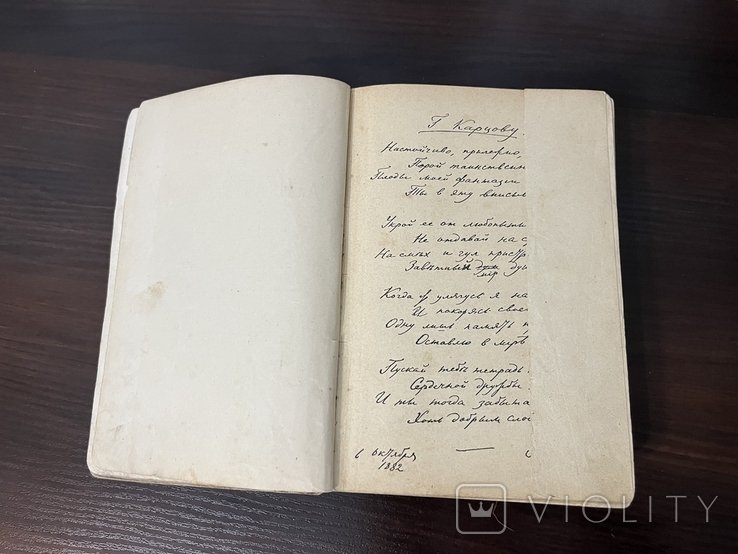 Г Карцову.
Настойчиво, прилежно,
Порой таинствен
Плоды моей фантазии
Ты в эту вписы
Укрой ее от любопытн
Не отдавай на с
На смѣх и гул прист
Завѣтный дум
мiр
Когда я улягусь я на
И покорясь свое
Одну лишь память
Оставлю в мiрѣ
Пускай тебѣ тетрадь
Сердечной дружбы
И ты тогда забыта
Хоть добрым сло
6 октября
1882
VIOLITY